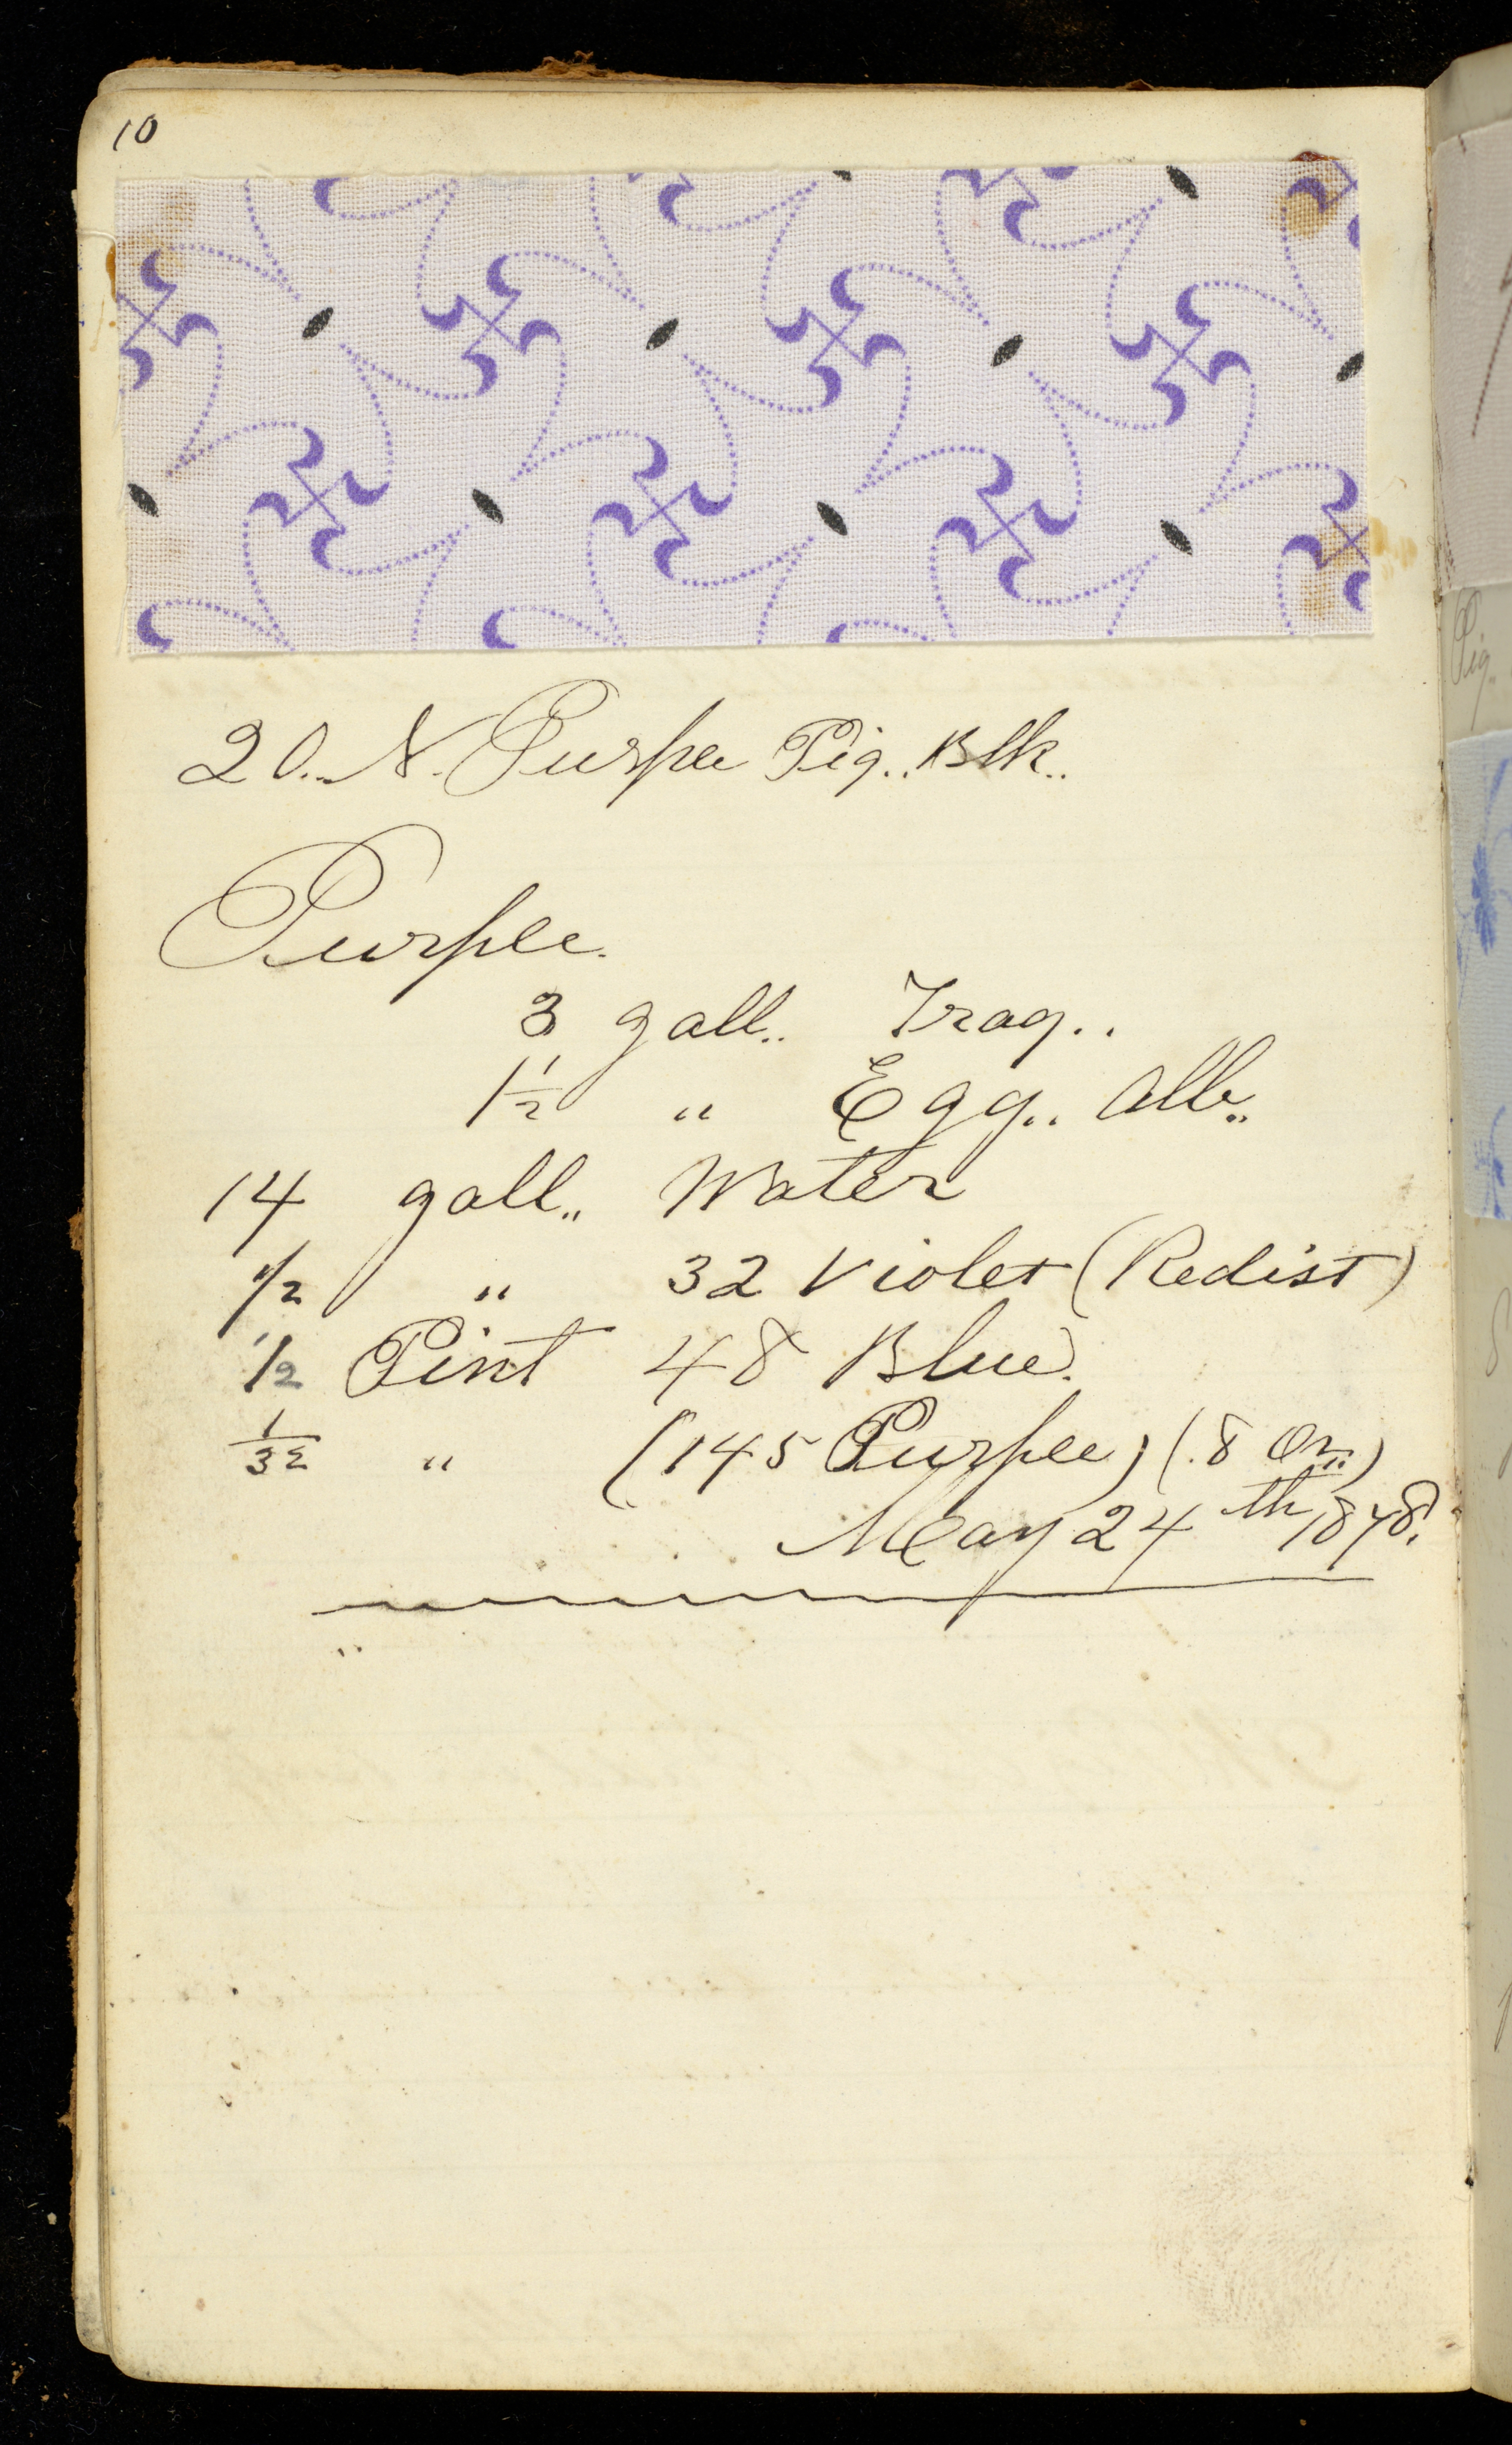 10
20.. N. Purple Pig.. Blk..
Purple.
3 gall.. Trag..
1 1/2 " Egg.. Alb..
14 gall.. Water
1/2 " 32 Violet (Redist)
1/2 Pint 48 Blue.
1/32 " (145 Purple) (.8 Oz..)
May 24th 1878.
Pig..